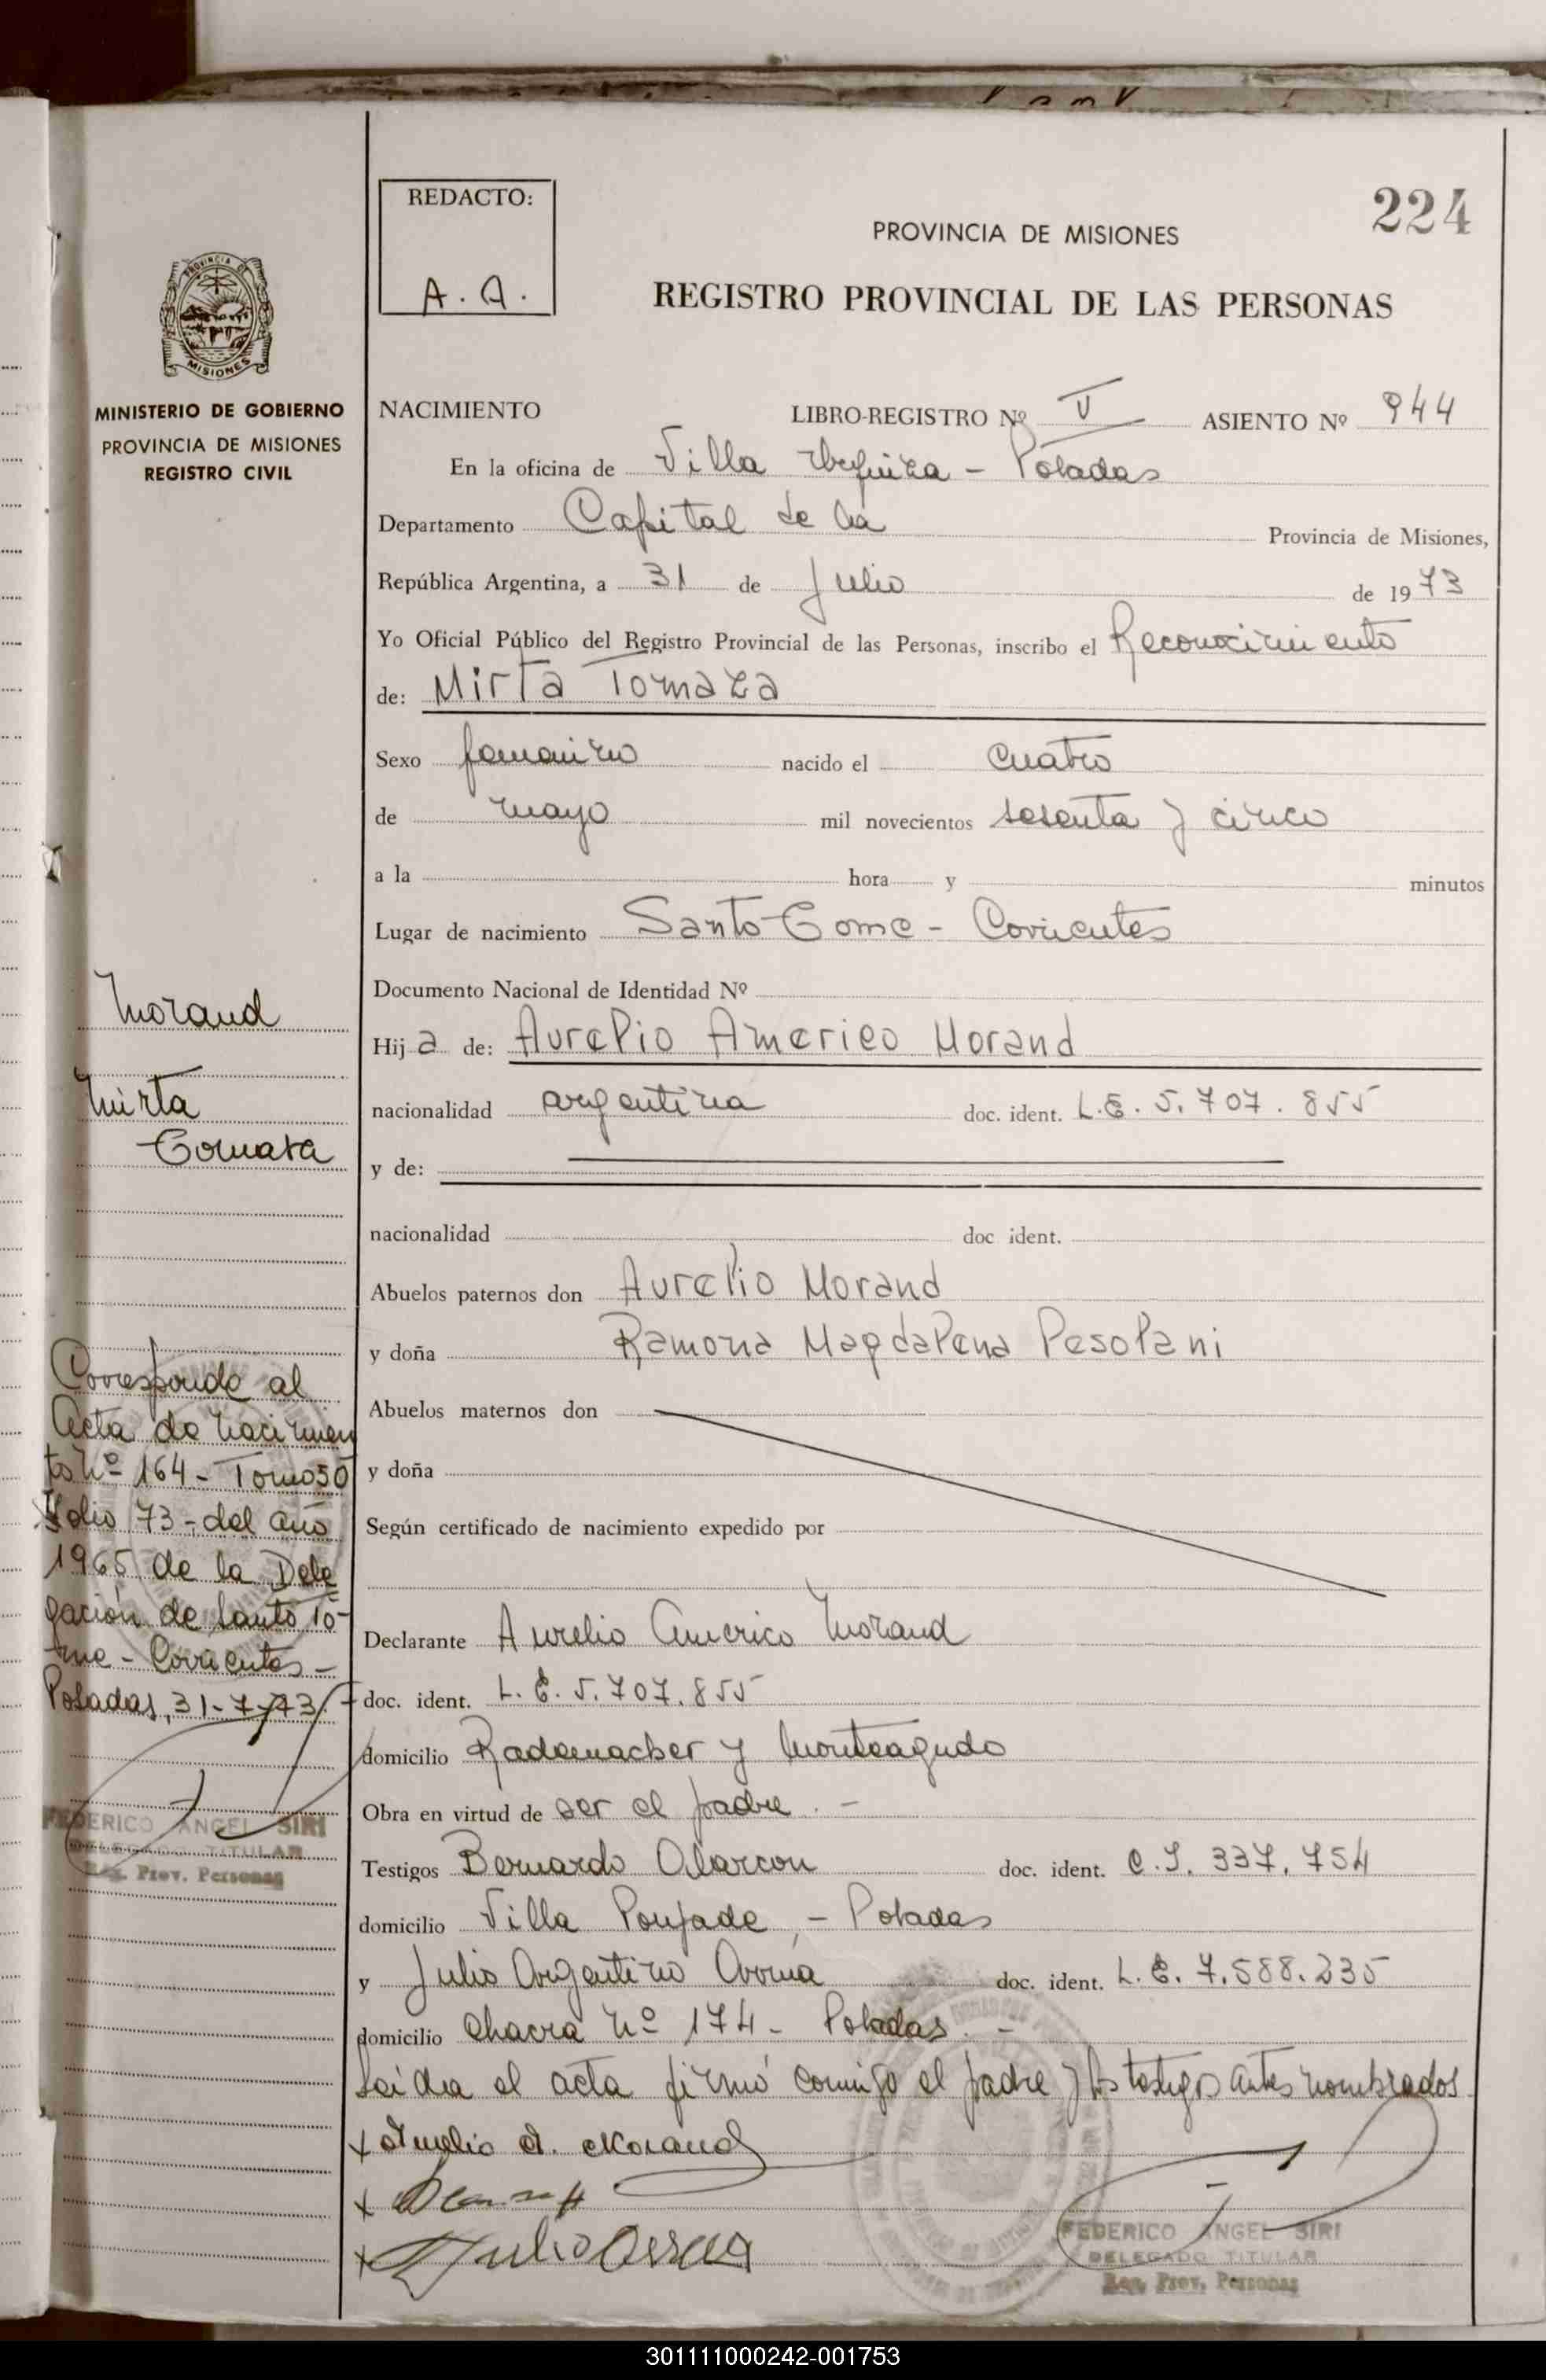 224
REDACTO:
A. A.
PROVINCIA DE MISIONES
REGISTRO PROVINCIAL DE LAS PERSONAS
PROVINCIA DE
MISIONES
MINISTERIO DE GOBIERNO
PROVINCIA DE MISIONES
REGISTRO CIVIL
NACIMIENTO LIBRO-REGISTRO Nº V ASIENTO Nº 944
En la oficina de Villa Urquiza - Posadas
Departamento Capital de la Provincia de Misiones,
República Argentina, a 31 de Julio de 1973
Yo Oficial Público del Registro Provincial de las Personas, inscribo el Reconocimiento
de: Mirta Tomaza
Sexo femenino nacido el cuatro
de mayo mil novecientos sesenta y cinco
a la hora y minutos
Lugar de nacimiento Santo Tome - Corrientes
Documento Nacional de Identidad Nº
Hija de: Aurelio Americo Morand
nacionalidad argentina doc. ident. L.E. 5.707.855
y de:
nacionalidad doc ident.
Abuelos paternos don Aurelio Morand
y doña Ramona Magdalena Pesolani
Abuelos maternos don
y doña
Según certificado de nacimiento expedido por
Declarante Aurelio Americo Morand
doc. ident. L.E. 5.707.855
domicilio Rademacher y Monteagudo
Obra en virtud de ser el padre. -
Testigos Bernardo Alarcon doc. ident. C.I. 337.754
domicilio Villa Poujade, - Posadas
y Julio Argentino doc. ident. L.E. 7.588.235
domicilio Chacra Nº 174 - Posadas. -
Leida el acta firmó conmigo el padre y los testigos antes nombrados
x Aurelio A. Morand
x
x Julio
FEDERICO ANGEL SIRI
DELEGADO TITULAR
Reg. Prov. Personas
Morand
Mirta
Tomaza
Corresponde al
Acta de nacimien
to Nº 164 - Tomo 50
Folio 73 - del año
1965 de la Dele
gación de Santo To-
me - Corrientes -
Posadas, 31-7-73/-
FEDERICO ANGEL SIRI
DELEGADO TITULAR
Reg. Prov. Personas
301111000242-001753